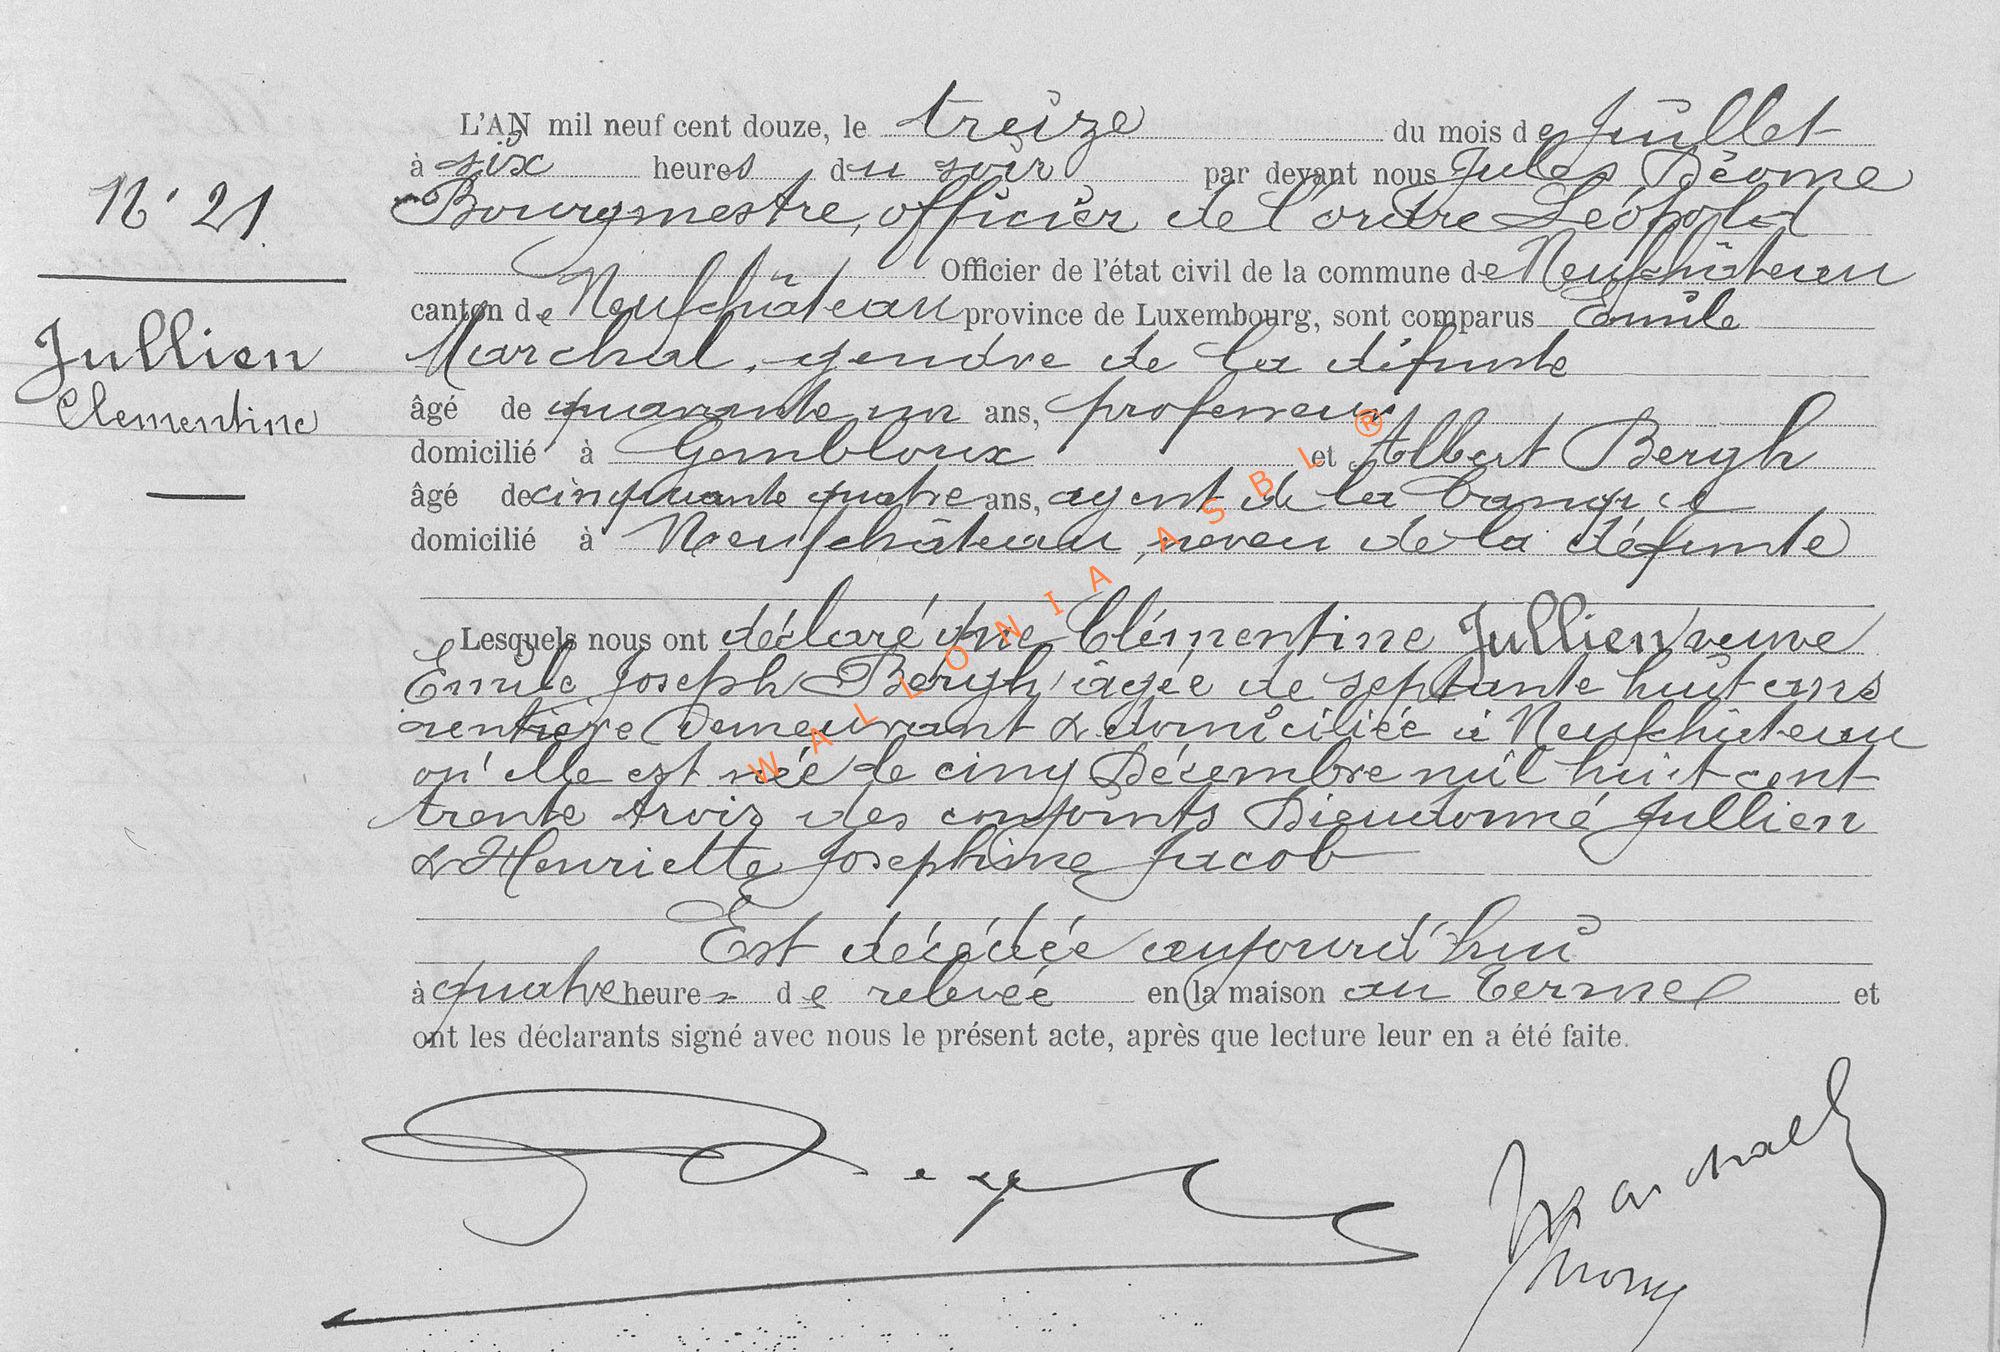 N° 21
Jullien
Clementine
L'AN mil neuf cent douze, le treize du mois de Juillet
à six heures du soir par devant nous Jules Déome
Bourgmestre, officier de l'ordre Léopold
Officier de l'état civil de la commune de Neufchâteau
canton de Neufchâteau province de Luxembourg, sont comparus Emile
Marchal, gendre de la défunte
âgé de quarante un ans, professeur
domicilié à Gembloux et Albert Bergh
âgé de cinquante quatre ans, agent de la banque
domicilié à Neufchâteau, neveu de la défunte
Lesquels nous ont déclaré que Clémentine Jullien veuve
Emile Joseph Bergh âgée de septante huit ans
rentière demeurant & domiciliée à Neufchâteau
où elle est née le cinq Décembre mil huit cent
trente trois des conjoints Dieudonné Jullien
& Henriette Josephine Jacob
Est décédée aujourd'hui
à quatre heures de relevée en la maison au Terme et
ont les déclarants signé avec nous le présent acte, après que lecture leur en a été faite.
Marchal
WALLONIA ASBL ®